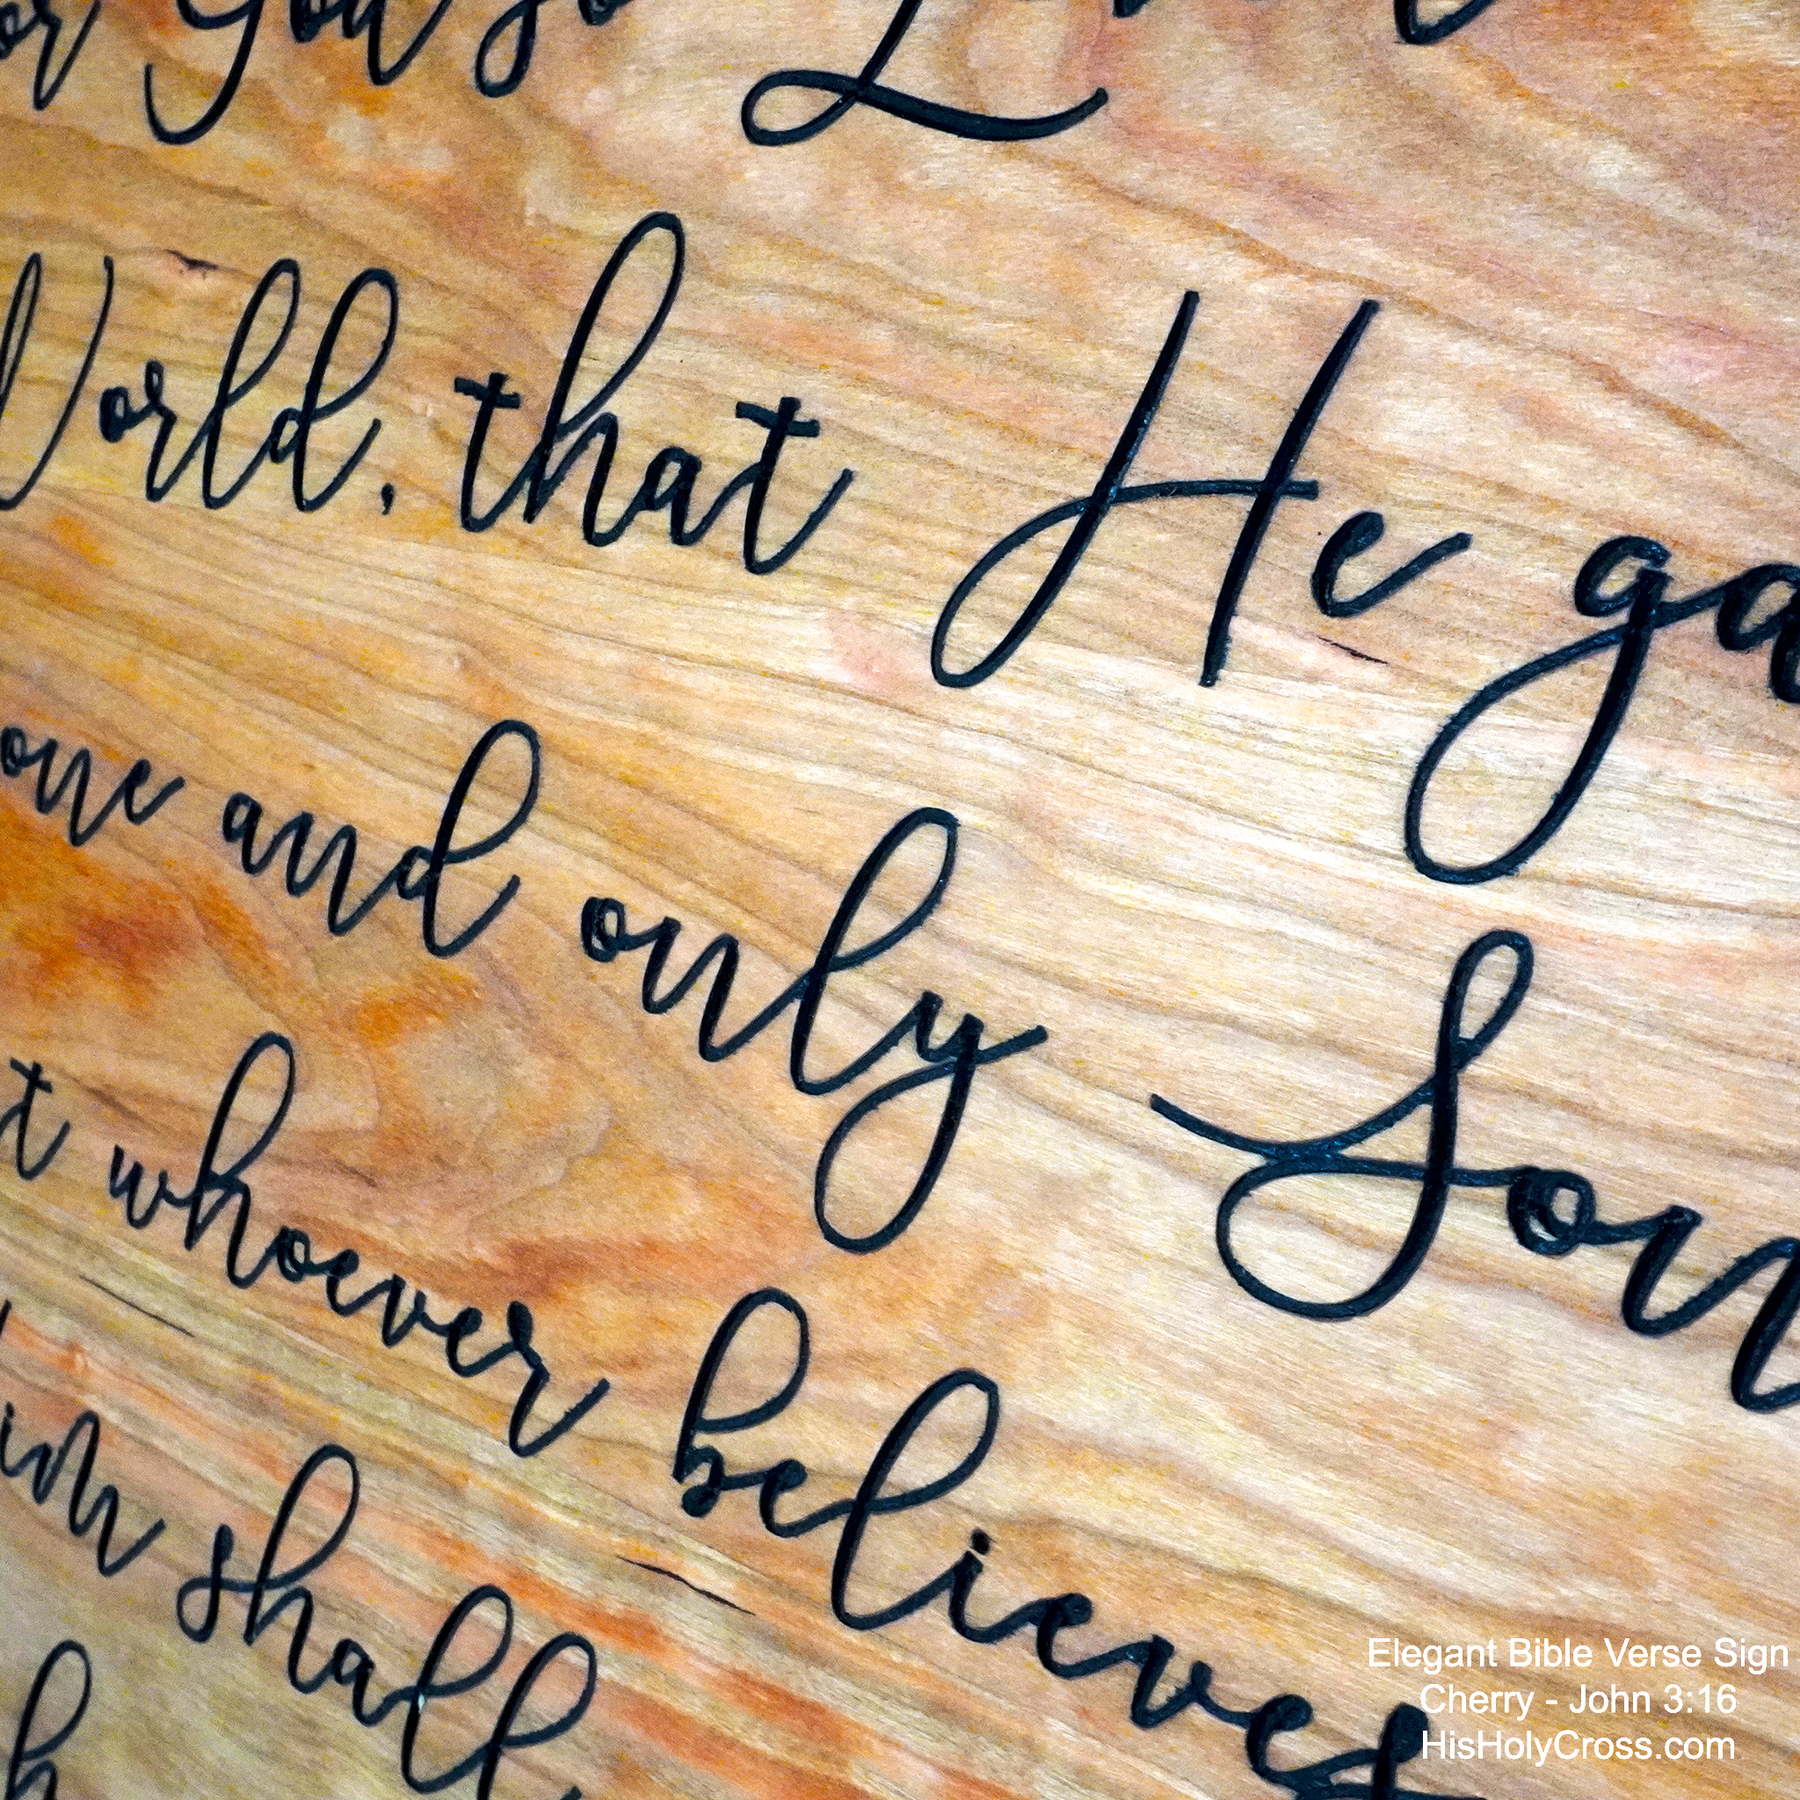 or God so
World, that He ga
one and only Son
t whoever believes
im shall
h
Elegant Bible Verse Sign
Cherry - John 3:16
HisHolyCross.com